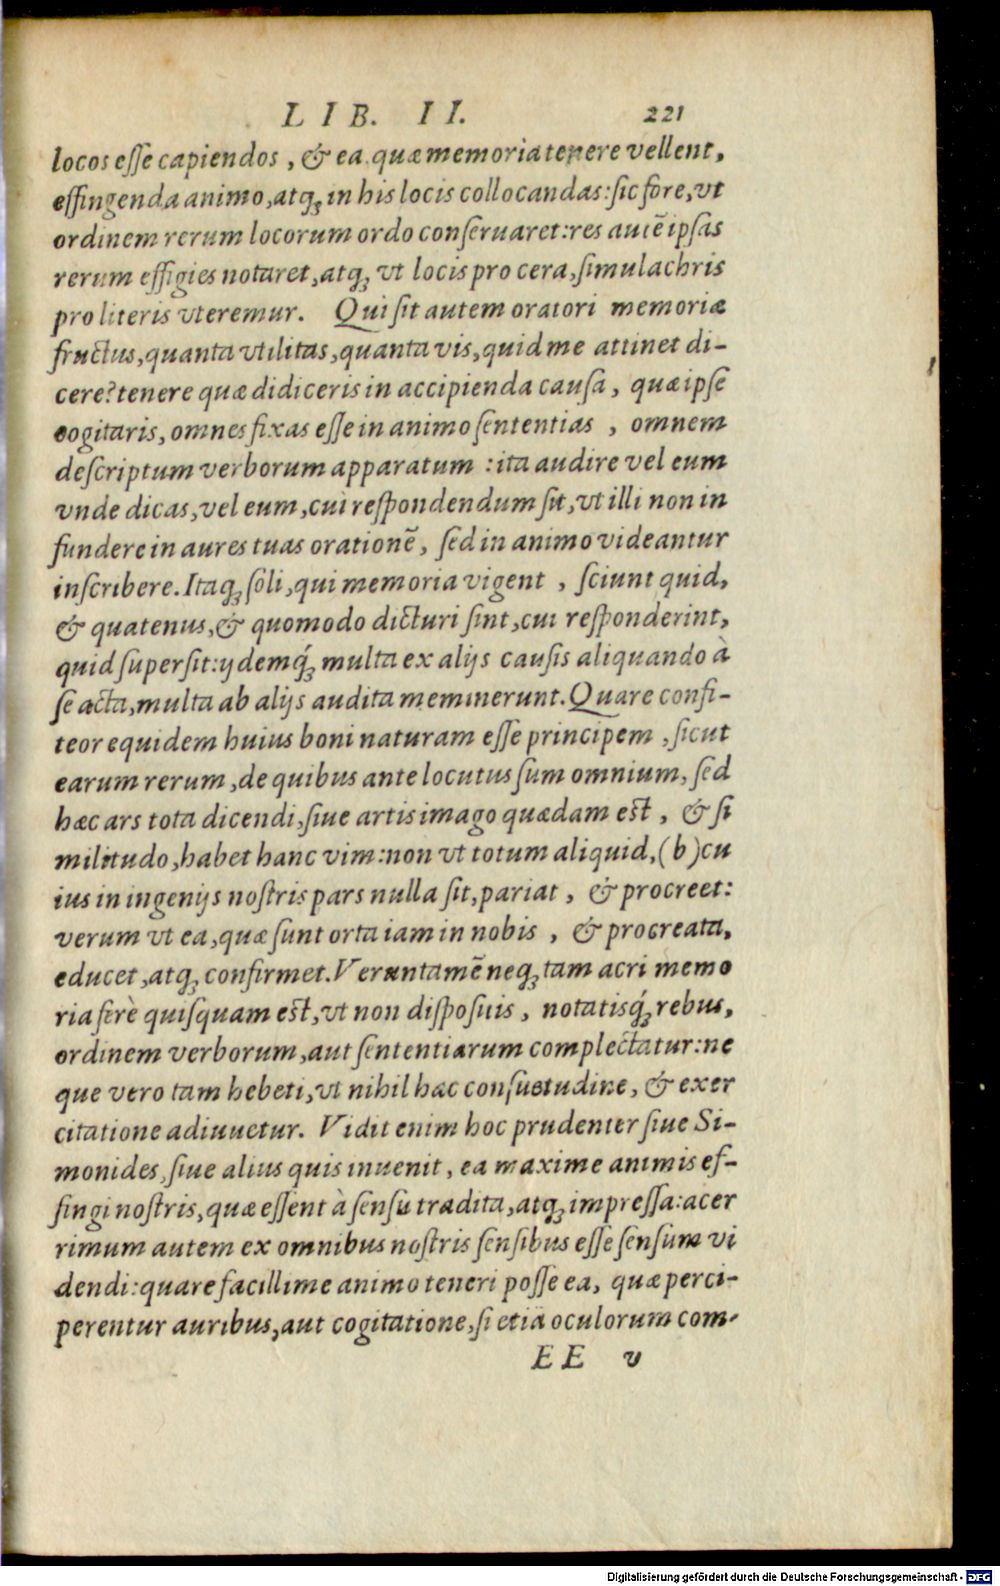 LIB. II. 221
locos esse capiendos, & ea quæ memoria tenere vellent,
effingenda animo, atq; in his locis collocandas: sic fore, vt
ordinem rerum locorum ordo conseruaret: res autē ipsas
rerum effigies notaret, atq; vt locis pro cera, simulachris
pro literis vteremur. Qui sit autem oratori memoriæ
fructus, quanta vtilitas, quanta vis, quid me attinet di-
cere? tenere quæ didiceris in accipienda causa, quæ ipse
cogitaris, omnes fixas esse in animo sententias, omnem
descriptum verborum apparatum: ita audire vel eum
vnde dicas, vel eum, cui respondendum sit, vt illi non in
fundere in aures tuas orationē, sed in animo videantur
inscribere. Itaq; soli, qui memoria vigent, sciunt quid,
& quatenus, & quomodo dicturi sint, cui responderint,
quid supersit: ijdemq́; multa ex alijs causis aliquando à
se acta, multa ab alijs audita meminerunt. Quare confi-
teor equidem huius boni naturam esse principem, sicut
earum rerum, de quibus ante locutus sum omnium, sed
hæc ars tota dicendi, siue artis imago quædam est, & si
militudo, habet hanc vim: non vt totum aliquid, (b) cu
ius in ingenijs nostris pars nulla sit, pariat, & procreet:
verum vt ea, quæ sunt orta iam in nobis, & procreata,
educet, atq; confirmet. Veruntamē neq; tam acri memo
ria ferè quisquam est, vt non disposuis, notatisq́; rebus,
ordinem verborum, aut sententiarum complectatur: ne
que vero tam hebeti, vt nihil hac consuetudine, & exer
citatione adiuuetur. Vidit enim hoc prudenter siue Si-
monides, siue alius quis inuenit, ea maxime animis ef-
fingi nostris, quæ essent à sensu tradita, atq; impressa: acer
rimum autem ex omnibus nostris sensibus esse sensum vi
dendi: quare facillime animo teneri posse ea, quæ perci-
perentur auribus, aut cogitatione, si etiā oculorum com-
EE v
Digitalisierung gefördert durch die Deutsche Forschungsgemeinschaft - DFG